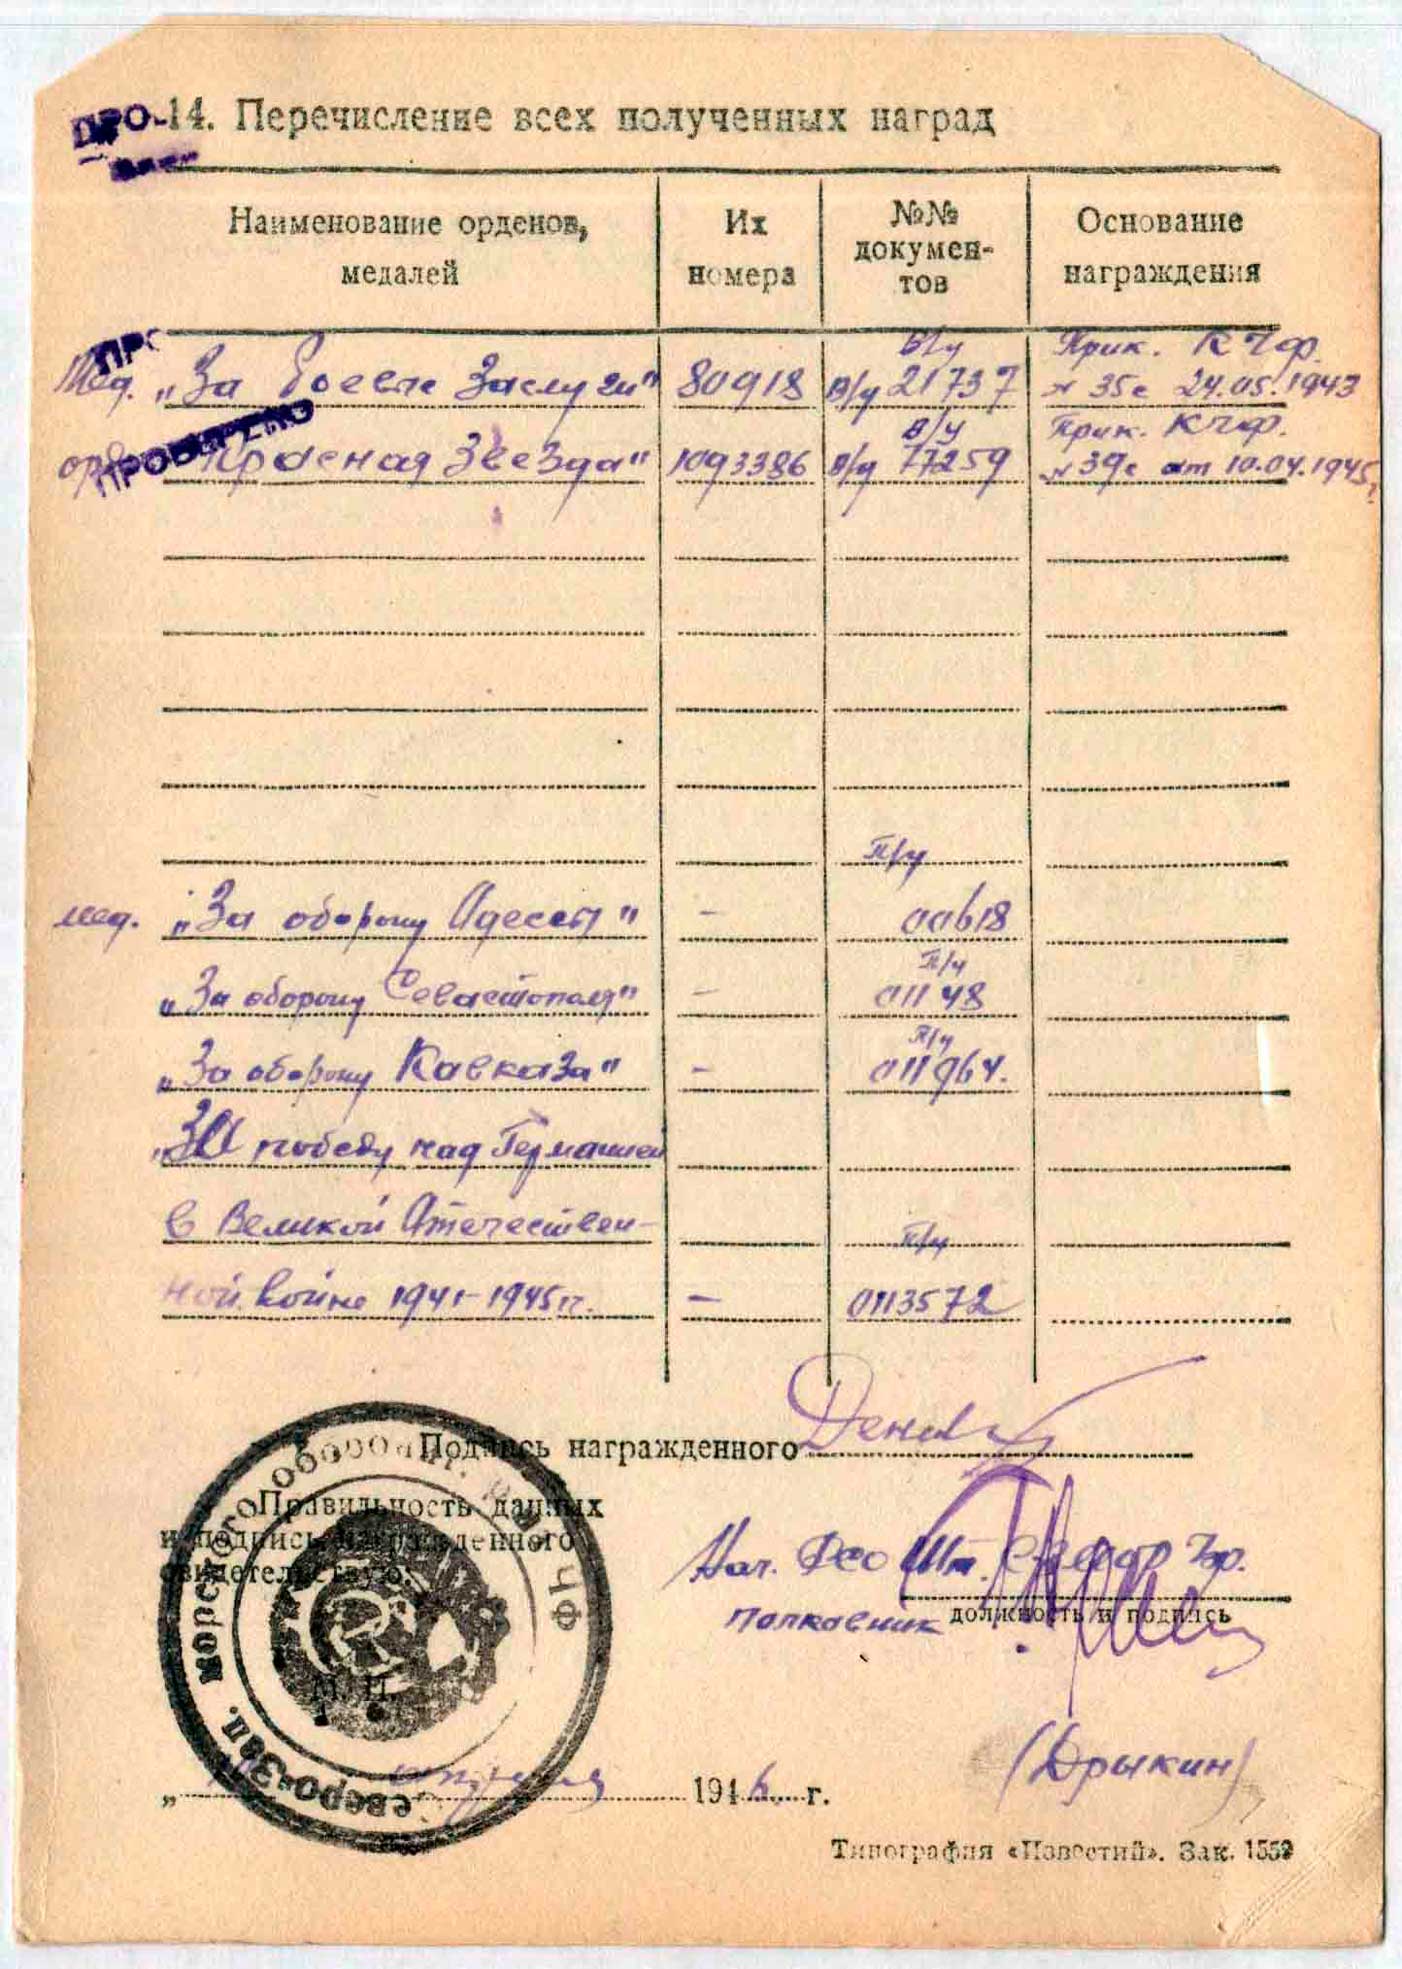 14. Перечисление всех полученных наград
Наименование орденов, медалей
Их номера
№№ документов
Основание награждения
Мед. „За боевые заслуги" 80918 в/у Б/у 21737 Прик. КЧФ. № 35с 24.05.1943
орд. „Красная Звезда" 1093386 в/у в/у 77259 Прик. КЧФ. № 39с от 10.04.1945г
ПРОВЕРЕНО
П/у
мед. „За оборону Одессы" - 00618
П/у
„За оборону Севастополя" - 01148
П/у
„За оборону Кавказа" - 011964.
„За победу над Германией
в Великой Отечествен- П/у
ной войне 1941-1945 гг. - 0113572
Подпись награжденного
Правильность данных
и подпись награжденного
свидетельствую:
Нач. Шт.
Полковник
должность и подпись
М. П.
Северо-Зап. морского оборон. ЧФ
(Дрыкин)
„ апреля 1946 г.
Типография «Известий». Зак. 1559